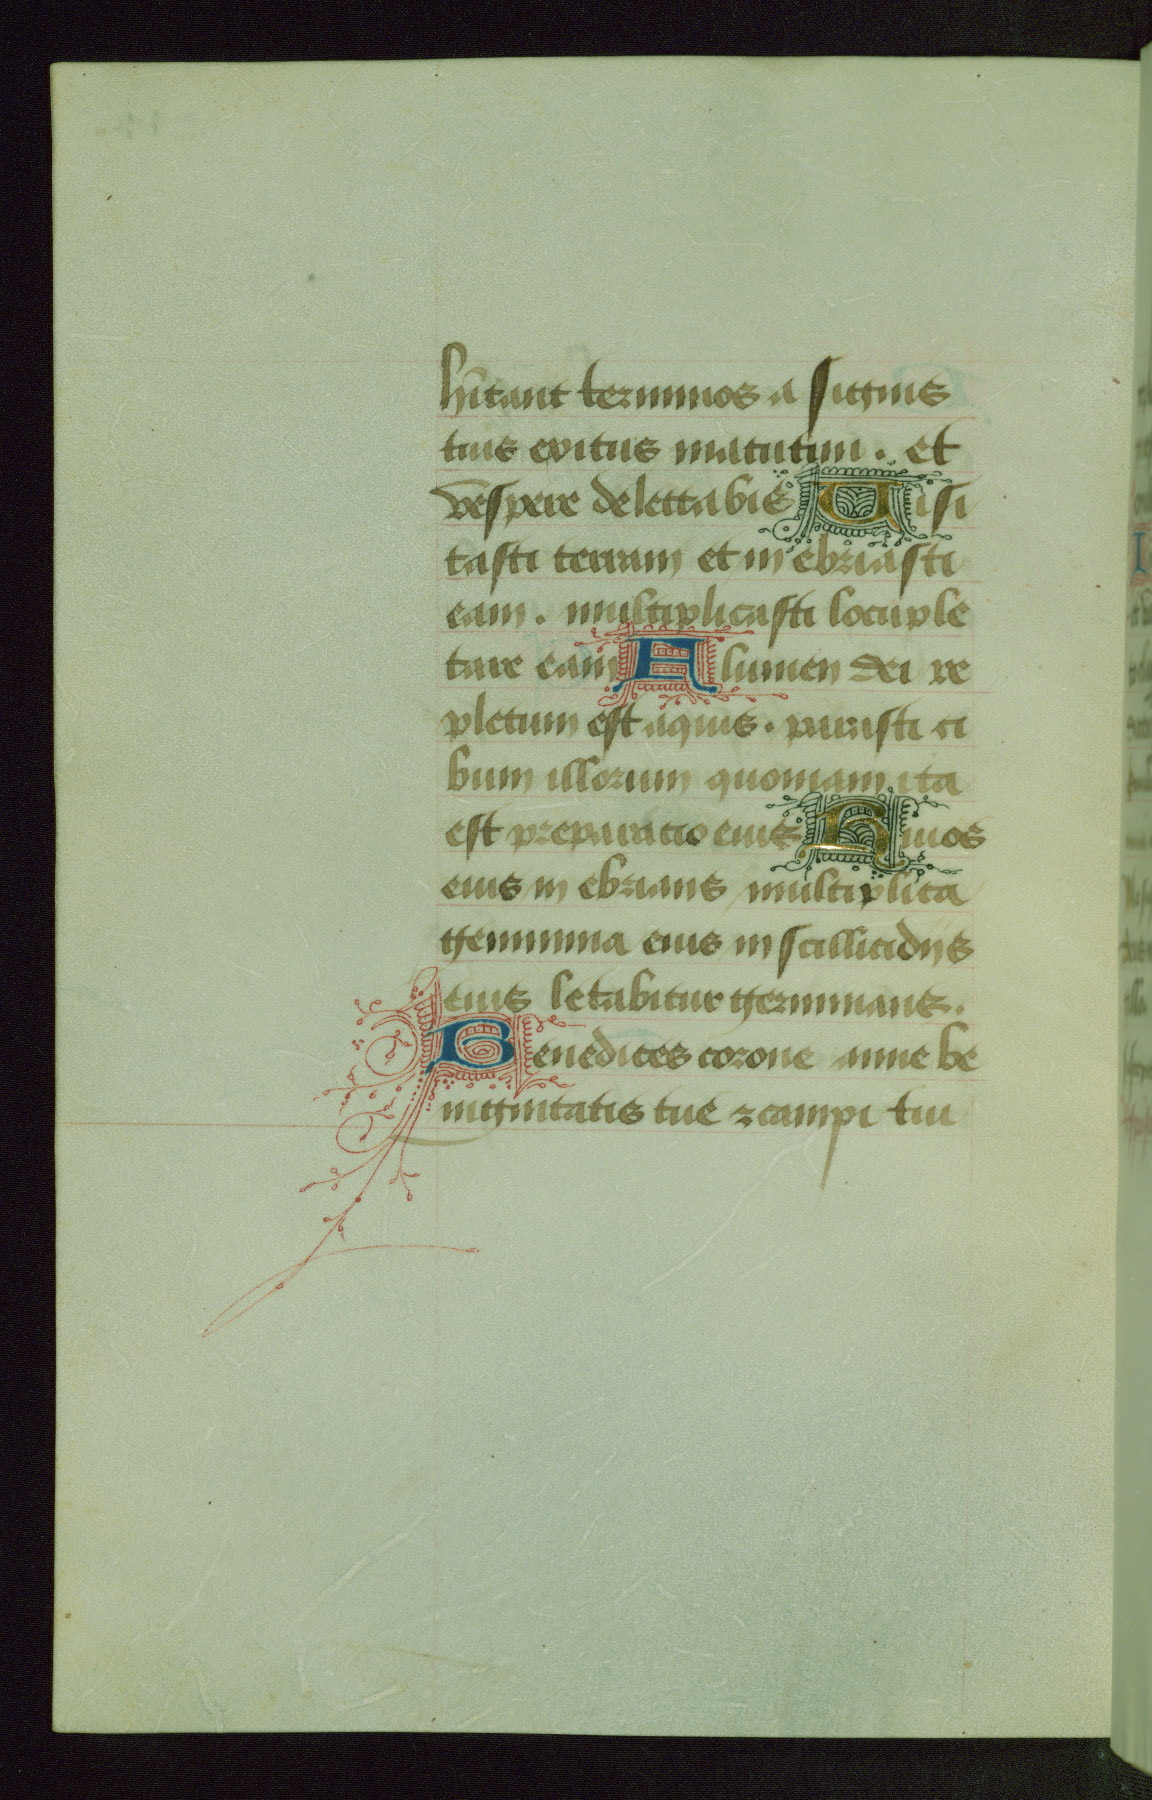 hitant terminos a signis
tuis exitus matutini . et
vespere delectabis Uisi
tasti terram et in ebriasti
eam . multiplicasti locuple
tare eam Flumen dei re
pletum est aquis . parasti ci
bum illorum quoniam ita
est preparatio eius Riuos
eius in ebrians multiplica
genimina eius in scillicidijs
eius letabitur germinans .
Benedices corone anne be
nignitatis tue ⁊ campi tui